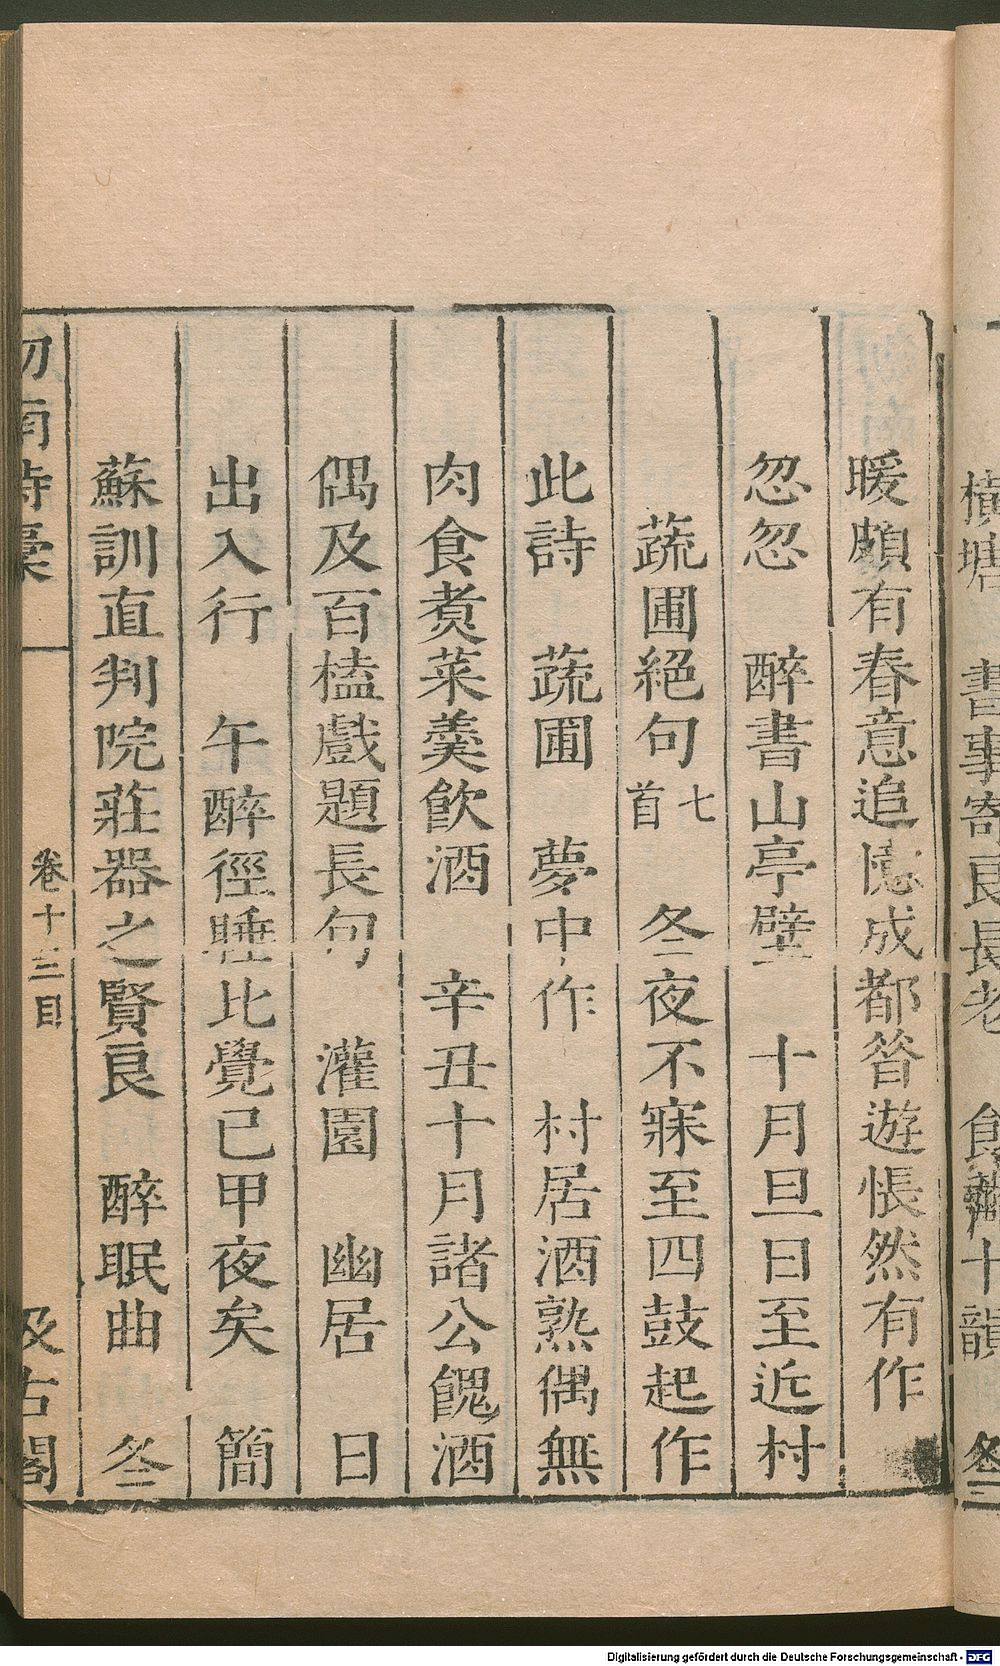 橫塘 書事寄良長老 十韻 冬
暖頗有春意追憶成都昝遊悵然有作
忽忽 醉書山亭壁 十月旦日至近村
蔬圃絕句七首 冬夜不寐至四鼓起作
此詩 蔬圃 夢中作 村居酒熟偶無
肉食煑菜羹飲酒 辛丑十月諸公餽酒
偶及百榼戲題長句 灌園 幽居 日
出入行 午醉徑睡比覺已甲夜矣 簡
蘇訓直判院莊器之賢良 醉眠曲 冬
劍南詩稾 卷十三目 汲古閣
Digitalisierung gefördert durch die Deutsche Forschungsgemeinschaft - DFG